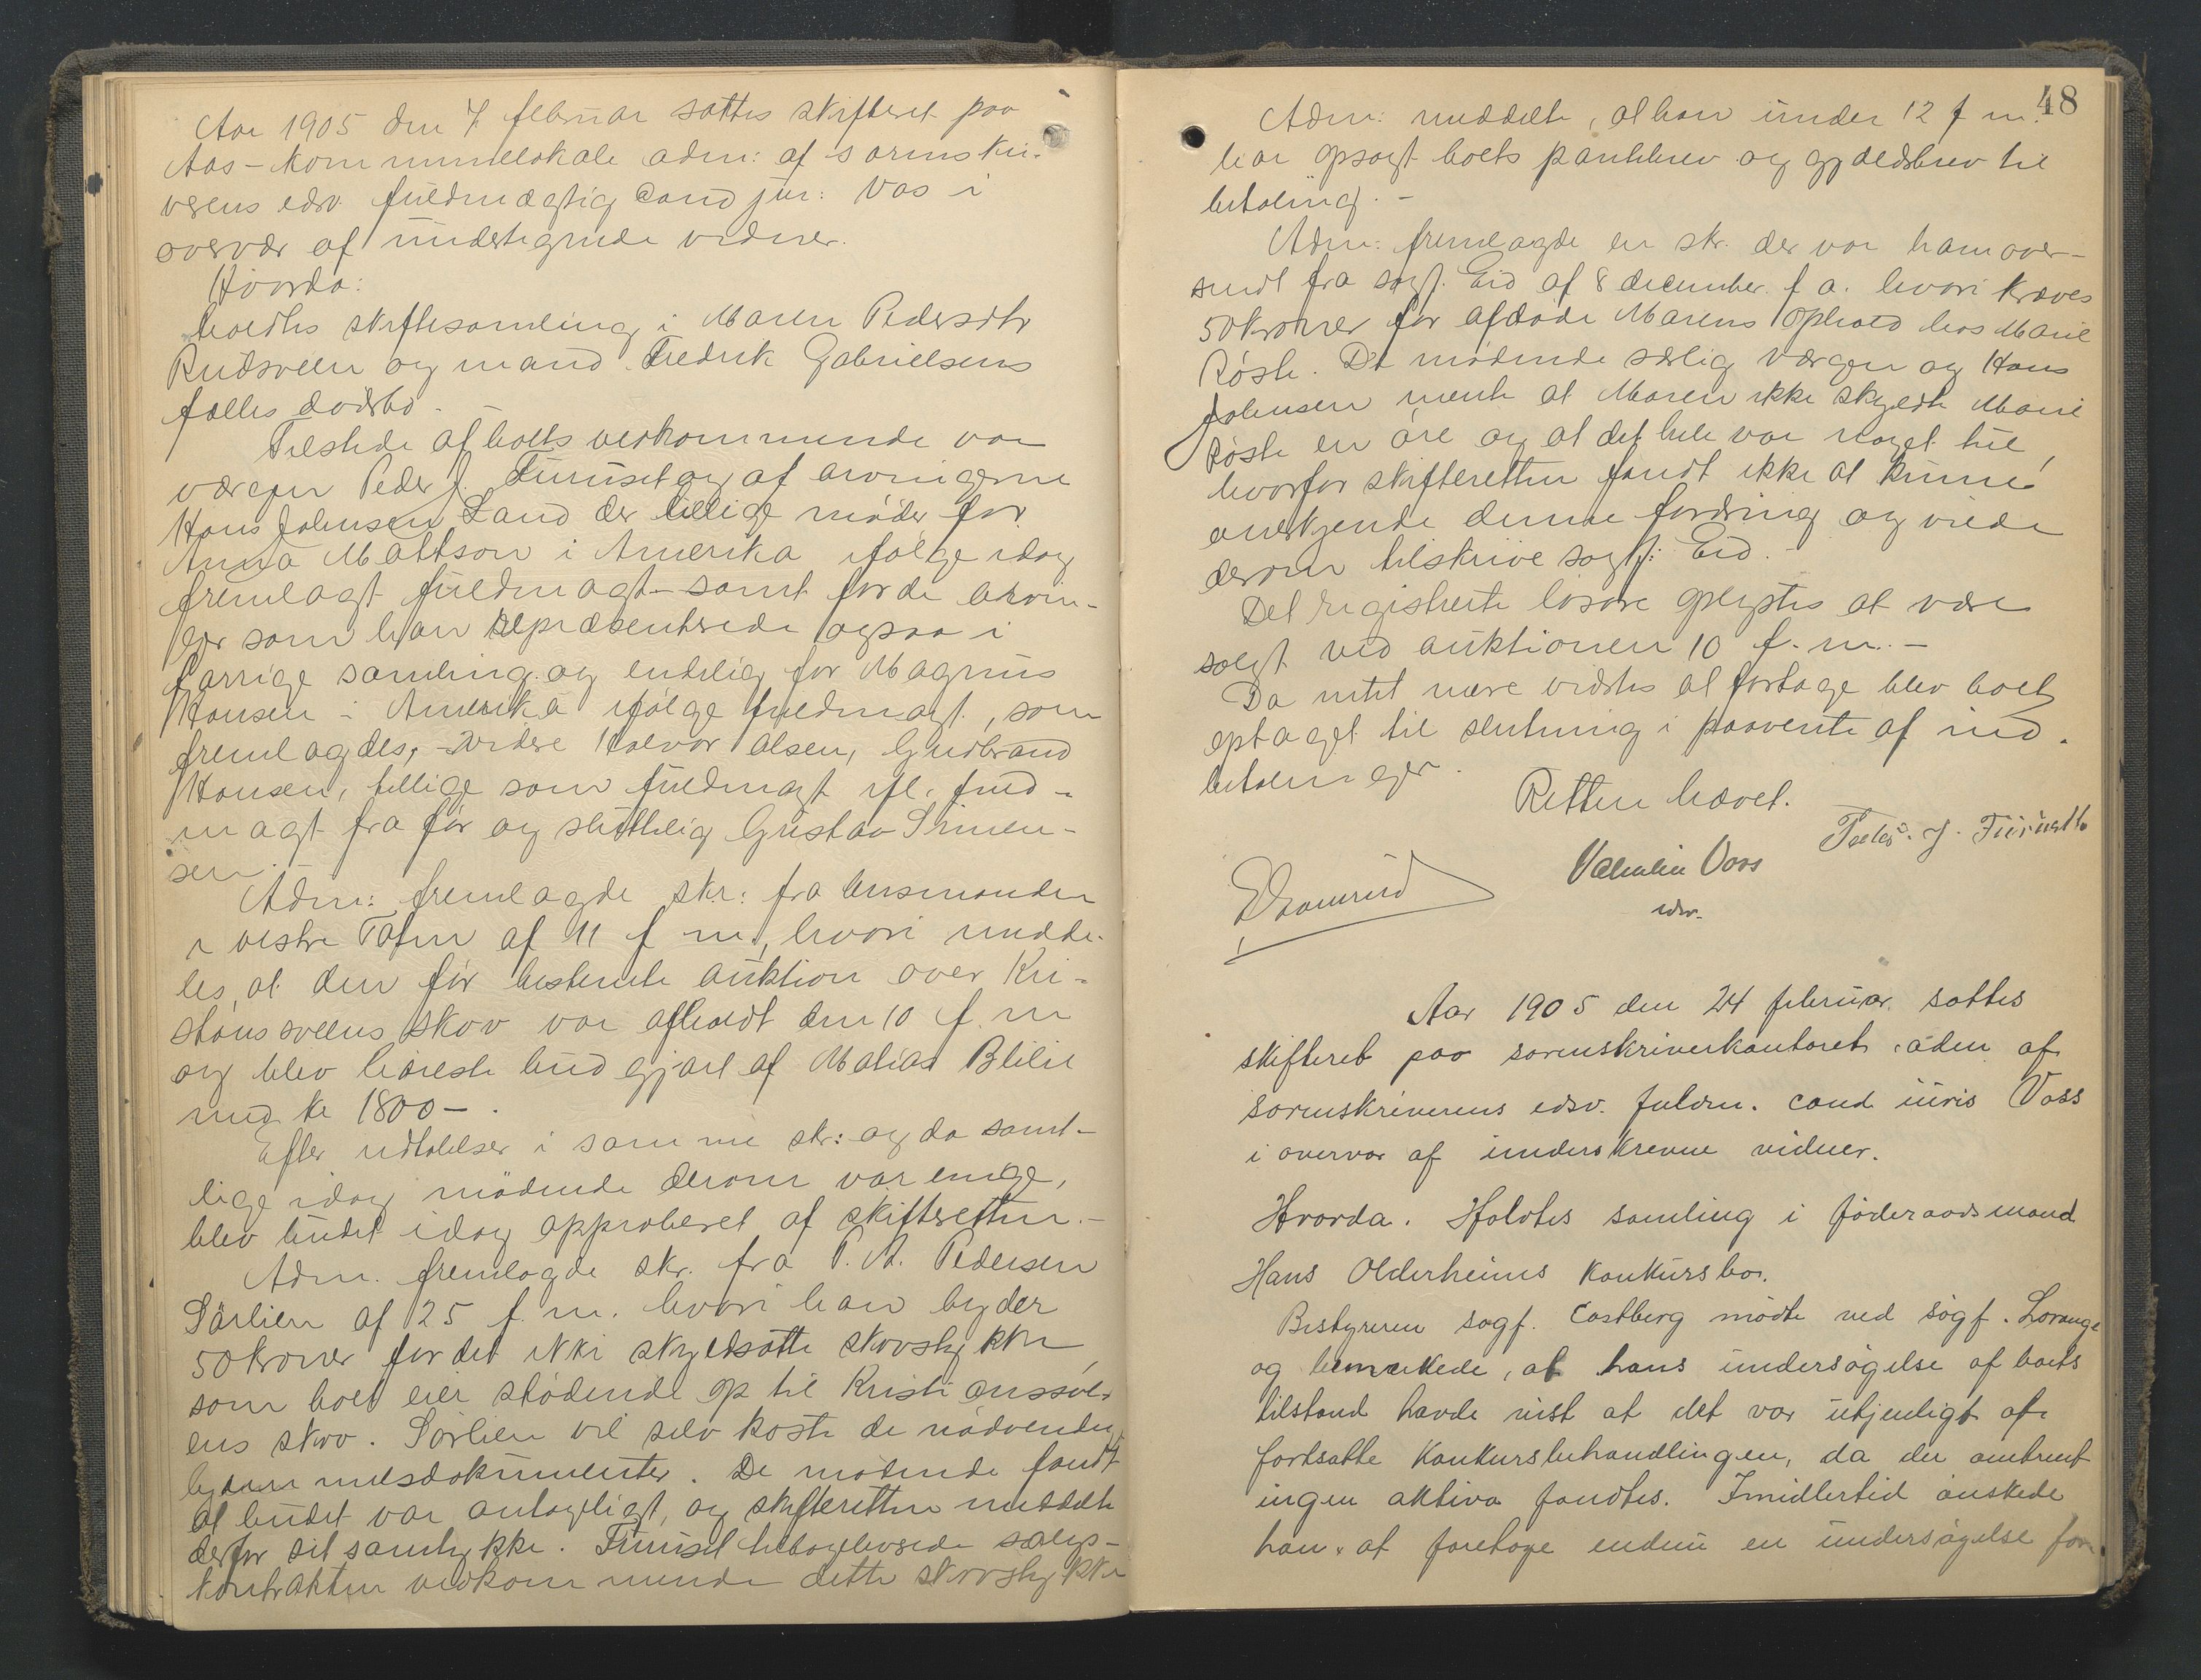 Aar 1905 den 7 februar sattes skifteret paa
Aas-kommunelokale adm: af sorenskri-
verens edsv. fuldmægtig cand jur: Vos i
overvær af undertegnede vidner.
Hvorda:
holdtes skiftesamling i Maren Pedersdtr
Rudsveen og mand Fredrik Gabrielsens
fælles dødsbo.
Tilstede af boets vedkommende var
værgen Peder J. Furuset og af arvingerne
Hans Johnsen Land der tillige møder for
Anna Mattson i Amerika ifølge idag
fremlagt fuldmagt samt for de arvin-
ger som han repræsenterede ogsaa i
forrige samling og endelig for Magnus
Hansen i Amerika ifølge fuldmagt, som
fremlagdes, videre Halvor Olsen, Gudbrand
Hansen, tillige som fuldmagt ifl. fuld-
magt fra før og sluttelig Gustav Simen-
sen
Adm: fremlagde skr: fra lensmanden
i vestre Toten af 11 f m, hvori medde-
les, at den før bestemte auktion over Kri-
stianssveens skov var afholdt den 10 f. m
og blev høieste bud gjort af Matias Blilie
med kr 1800-.
Efter udtalelser i samme skr: og da samt-
lige idag mødende derom var enige,
blev budet idag approberet af skifteretten.-
Adm. fremlagde skr. fra P. A. Pedersen
Sørlien af 25 f. m. hvori han byder
50 kroner for det ikke skyldsatte skovstykke,
som boet eier stødende op til Kristianssve-
ens skov. Sørlien vil selv koste de nødvendige
hjemmelsdokumenter. De mødende fandt
at budet var antageligt, og skifteretten meddelte
derfor sit samtykke. Furuset tilbageleverede salgs-
kontrakten vedkommende dette skovstykke
48
Adm: meddelte, at han under 12 f m.
har opsagt boets pantebrev og gjældsbrev til
betaling.-
Adm: fremlagde en skr. der var ham over-
sendt fra sagf. Eid af 8 december f a. hvori kræves
50 kroner for afdøde Marens ophold hos Marie
Røste. De mødende særlig værgen og Hans
Johnsen mente at Maren ikke skyldte Marie
Røste en øre og at det hele var noget tul,
hvorfor skifteretten fandt ikke at kunne
anerkjende denne fordring og vilde
derom tilskrive sagf: Eid.-
Det registrerte løsøre oplystes at være
solgt ved auktionen 10 f. m.-
Da intet mere vidstes at foretage blev boet
optaget til slutning i paavente af ind-
betalinger.
Retten hævet.
Peder J. Furuseth
Valentin Voss
edsv.
Aar 1905 den 24 februar sattes
skifteret paa sorenskriverkontoret adm af
sorenskriverens edsv. fuldm. cand iuris Voss
i overvær af underskrevne vidner.
Hvorda. Holdtes samling i føderaadsmand
Hans Olderheims konkursbo.
Bestyreren sagf. Castberg mødte ved sagf. Lorange
og bemærkede, at hans undersøgelse af boets
tilstand havde vist at det var utjenligt at
fortsætte konkursbehandlingen, da der omtrent
ingen aktiva fandtes. Imidlertid ønskede
han at foretage endnu en undersøgelse for